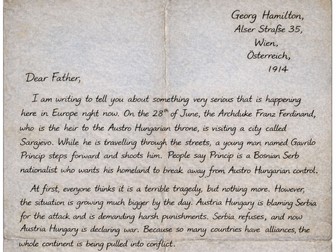 Georg Hamilton,
Alser Straße 35,
Wien,
Österreich,
1914
Dear Father,
I am writing to tell you about something very serious that is happening
here in Europe right now. On the 28th of June, the Archduke Franz Ferdinand,
who is the heir to the Austro Hungarian throne, is visiting a city called
Sarajevo. While he is travelling through the streets, a young man named Gavrilo
Princip steps forward and shoots him. People say Princip is a Bosnian Serb
nationalist who wants his homeland to break away from Austro Hungarian control.
At first, everyone thinks it is a terrible tragedy, but nothing more. However,
the situation is growing much bigger by the day. Austria Hungary is blaming Serbia
for the attack and is demanding harsh punishments. Serbia refuses, and now
Austria Hungary is declaring war. Because so many countries have alliances, the
whole continent is being pulled into conflict.